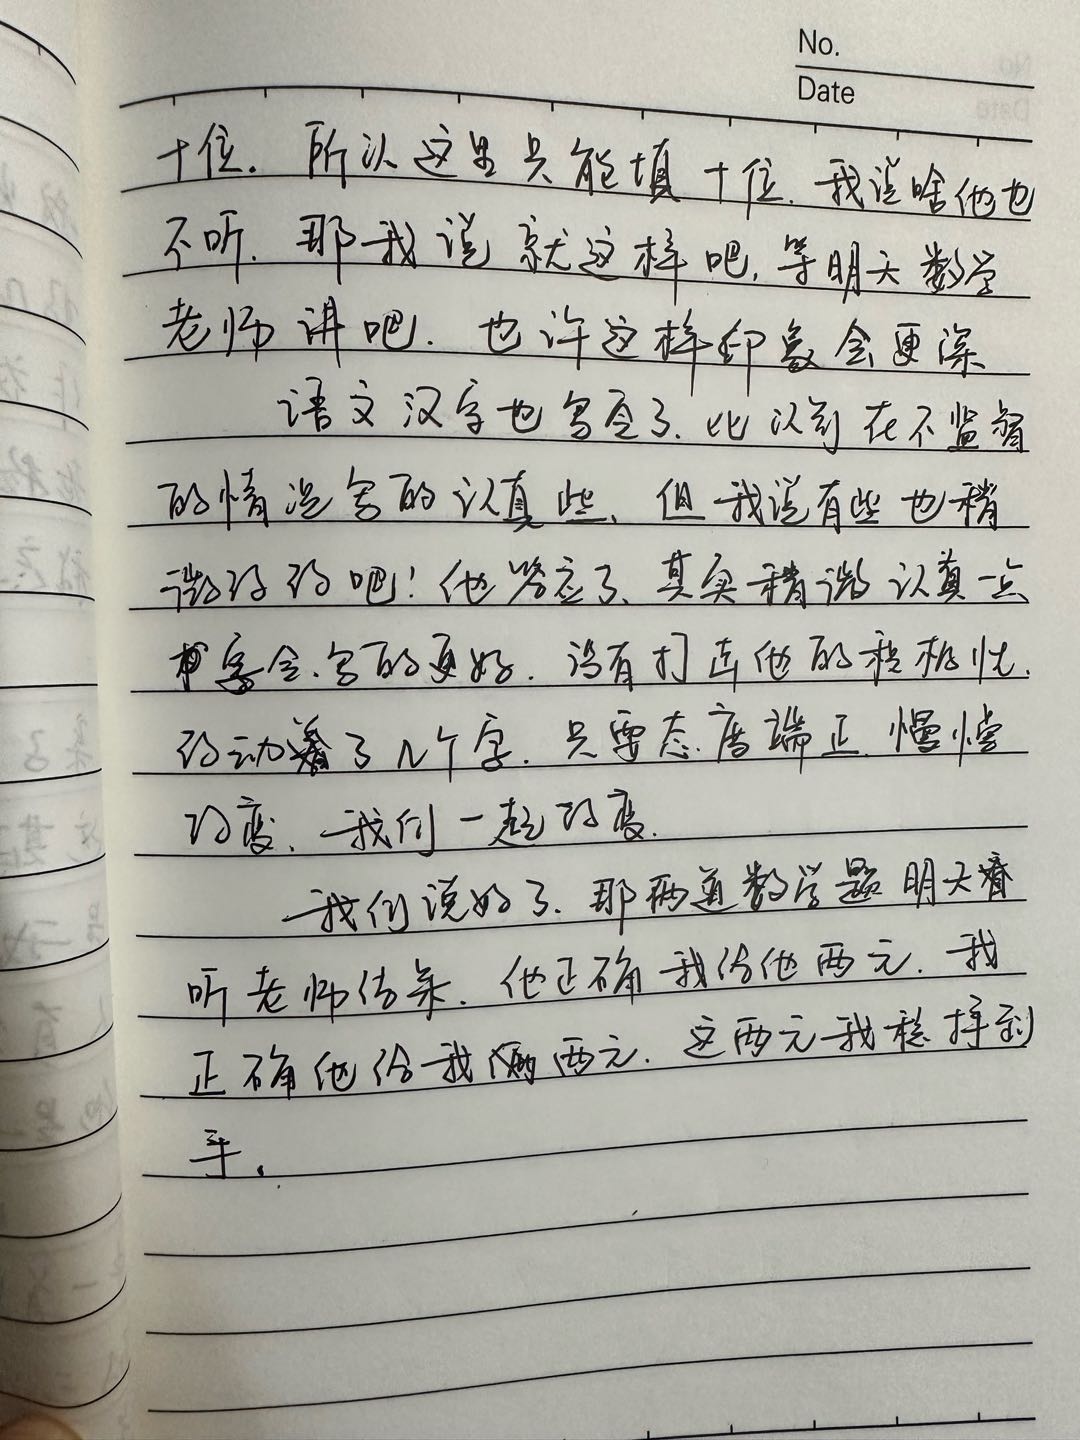 No.
Date
十位. 所以这里只能填十位. 我说啥他也
不听. 那我说就这样吧, 等明天数学
老师讲吧. 也许这样印象会更深
语文汉字也写完了. 比以前在不监督
的情况写的认真些. 但我说有些也稍
微改改吧! 他答应了. 其实稍微认真一点
字会写的更好. 没有打击他的积极性.
改动了几个字. 只要态度端正 慢慢
改变. 我们一起改变.
我们说好了. 那两道数学题明天看
听老师结果. 他正确我给他两元. 我
正确他给我两元. 这两元我稳拿到
手.